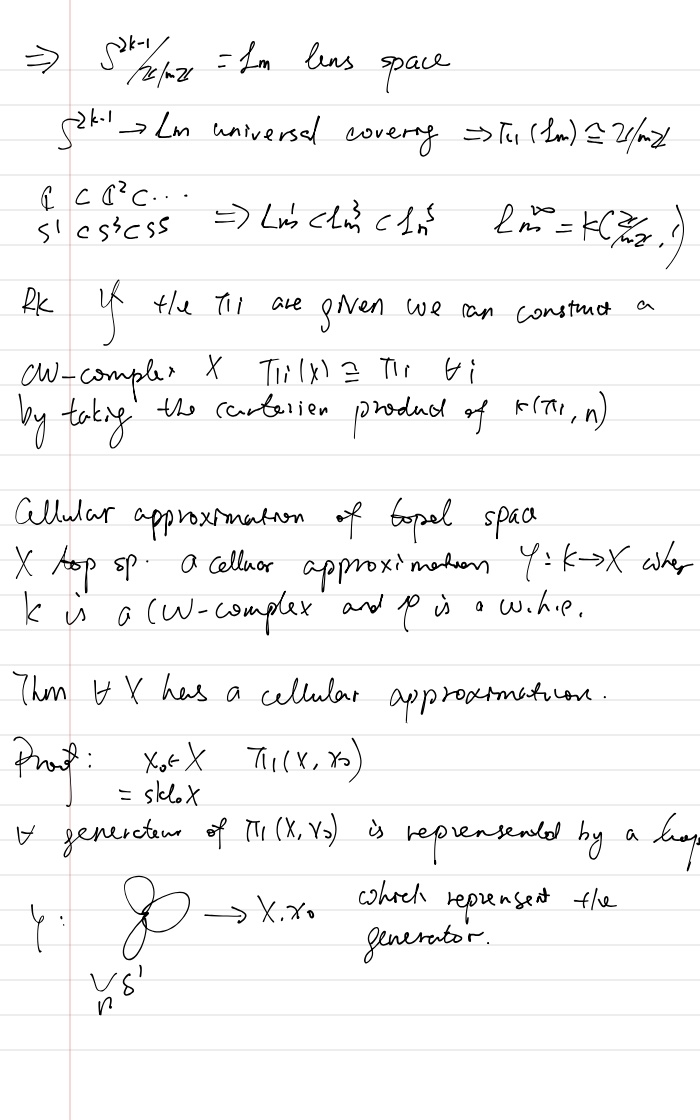 ⇒ S^{2k-1}/Z/mZ = Lm lens space
S^{2k-1} → Lm universal coverg ⇒ π1 (Lm) ≅ Z/mZ
ℂ ⊂ ℂ² ⊂ ...
S¹ ⊂ S³ ⊂ S⁵ ⇒ Lm¹ ⊂ Lm³ ⊂ Lm⁵ Lm^∞ = K(Z/mZ, 1)
Rk If the πi are given we can construct a
CW-complex X πi(X) ≅ πi ∀i
by takig the cartesien product of K(πi, n)
Cellular approximation of topol space
X top sp. a celluar approximation φ: K → X wher
K is a CW-complex and φ is a w.h.e.
Thm ∀ X has a cellular approximation.
Proof: x₀ ∈ X π1(X, x₀)
= sk₀X
∀ generateur of π1(X, x₀) is reprensented by a loop
φ: → X, x₀ which reprensent the
generator.
∨ S¹
n